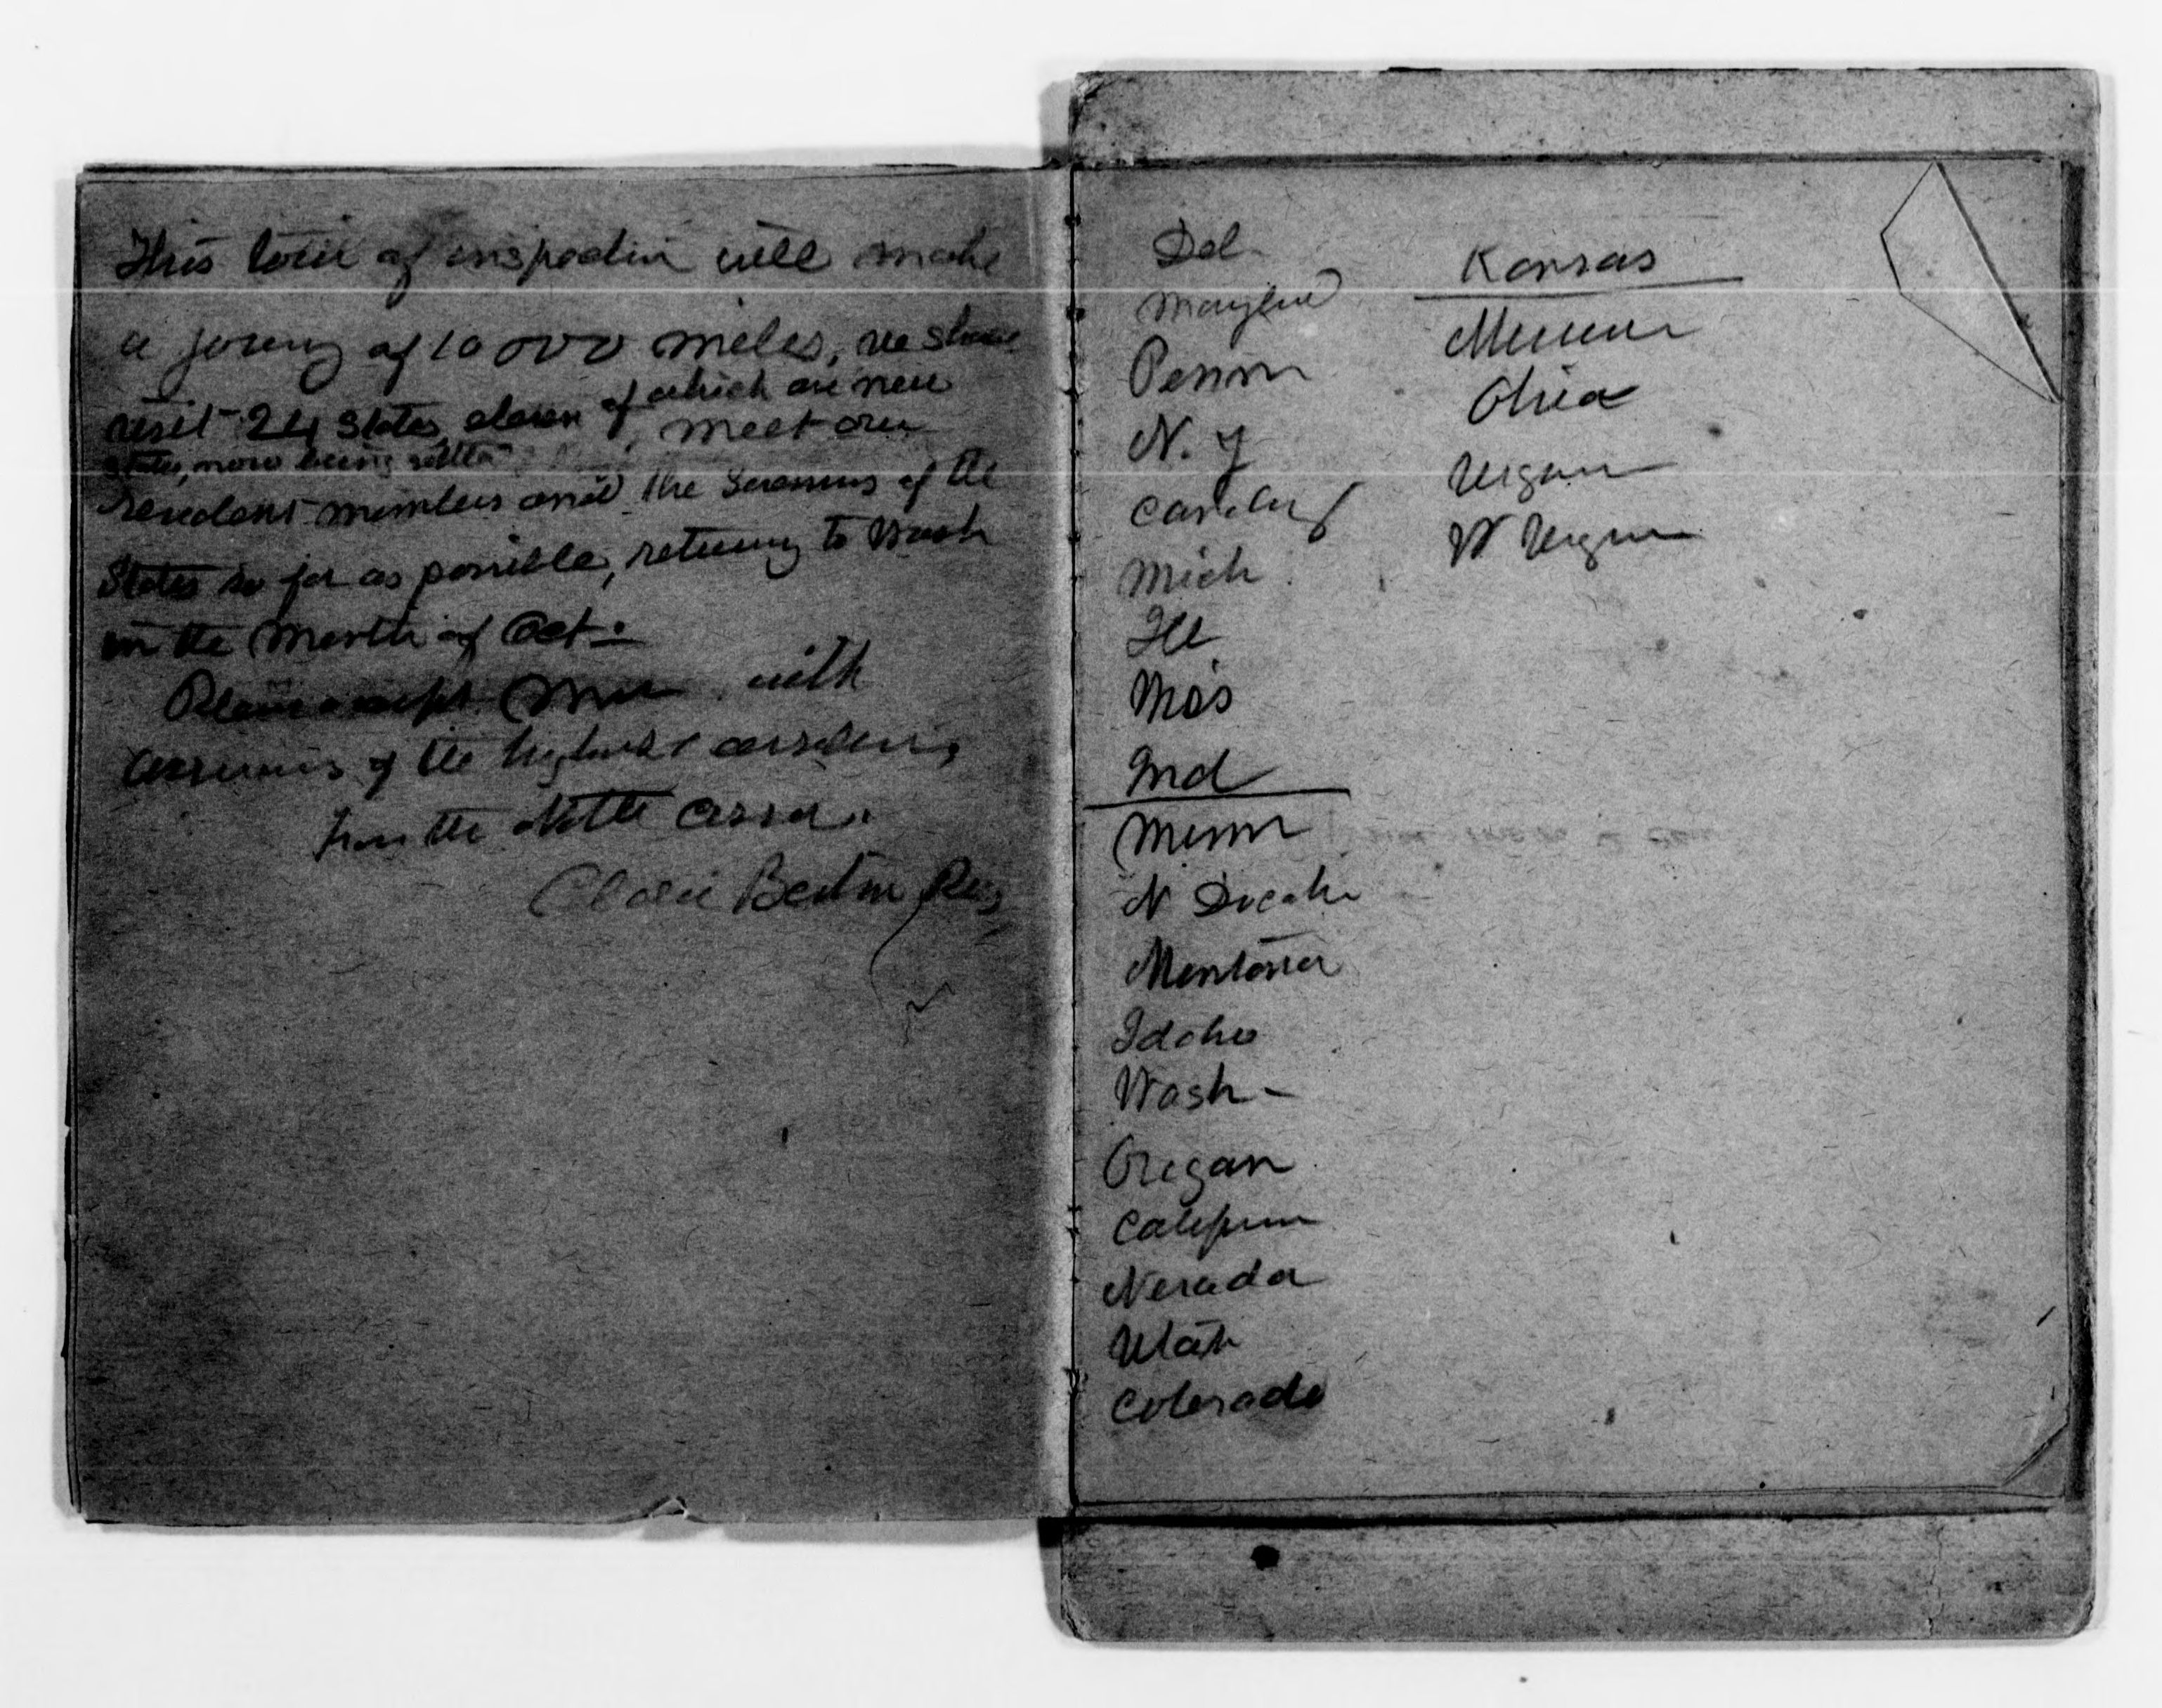 This tour of inspection will make
a journy of 10 000 miles, we shall
visit 24 States, eleven of which are new
States, now being settled, meet our
resident members and the Governors of the
States so far as possible, returning to Wash
in the Month of Oct.
Please accept with
assurances of the highest consideration,
from the Natl Assn.
Clara Barton Pres
Del
Maryland
Penn
N. Y
Canada
Mich
Ill
Mas
Ind
Minn
N Dacota
Montana
Idaho
Wash -
Oregan
California
Nevada
Utah
Colorado
Kansas
Missouri
Ohio
Virginia
W Virginia